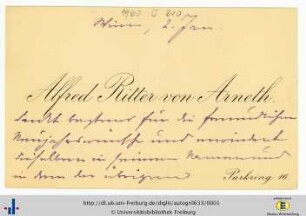 1940 G 310
Wien, 2. Jan.
Alfred Ritter von Arneth.
dankt bestens für die freundlichen
Neujahrswünsche und erwidert
dieselben in seinem Namen und
in dem der übrigen
Parkring 16.
http://dl.ub.uni-freiburg.de/diglit/autogr0633/0001
© Universitätsbibliothek Freiburg